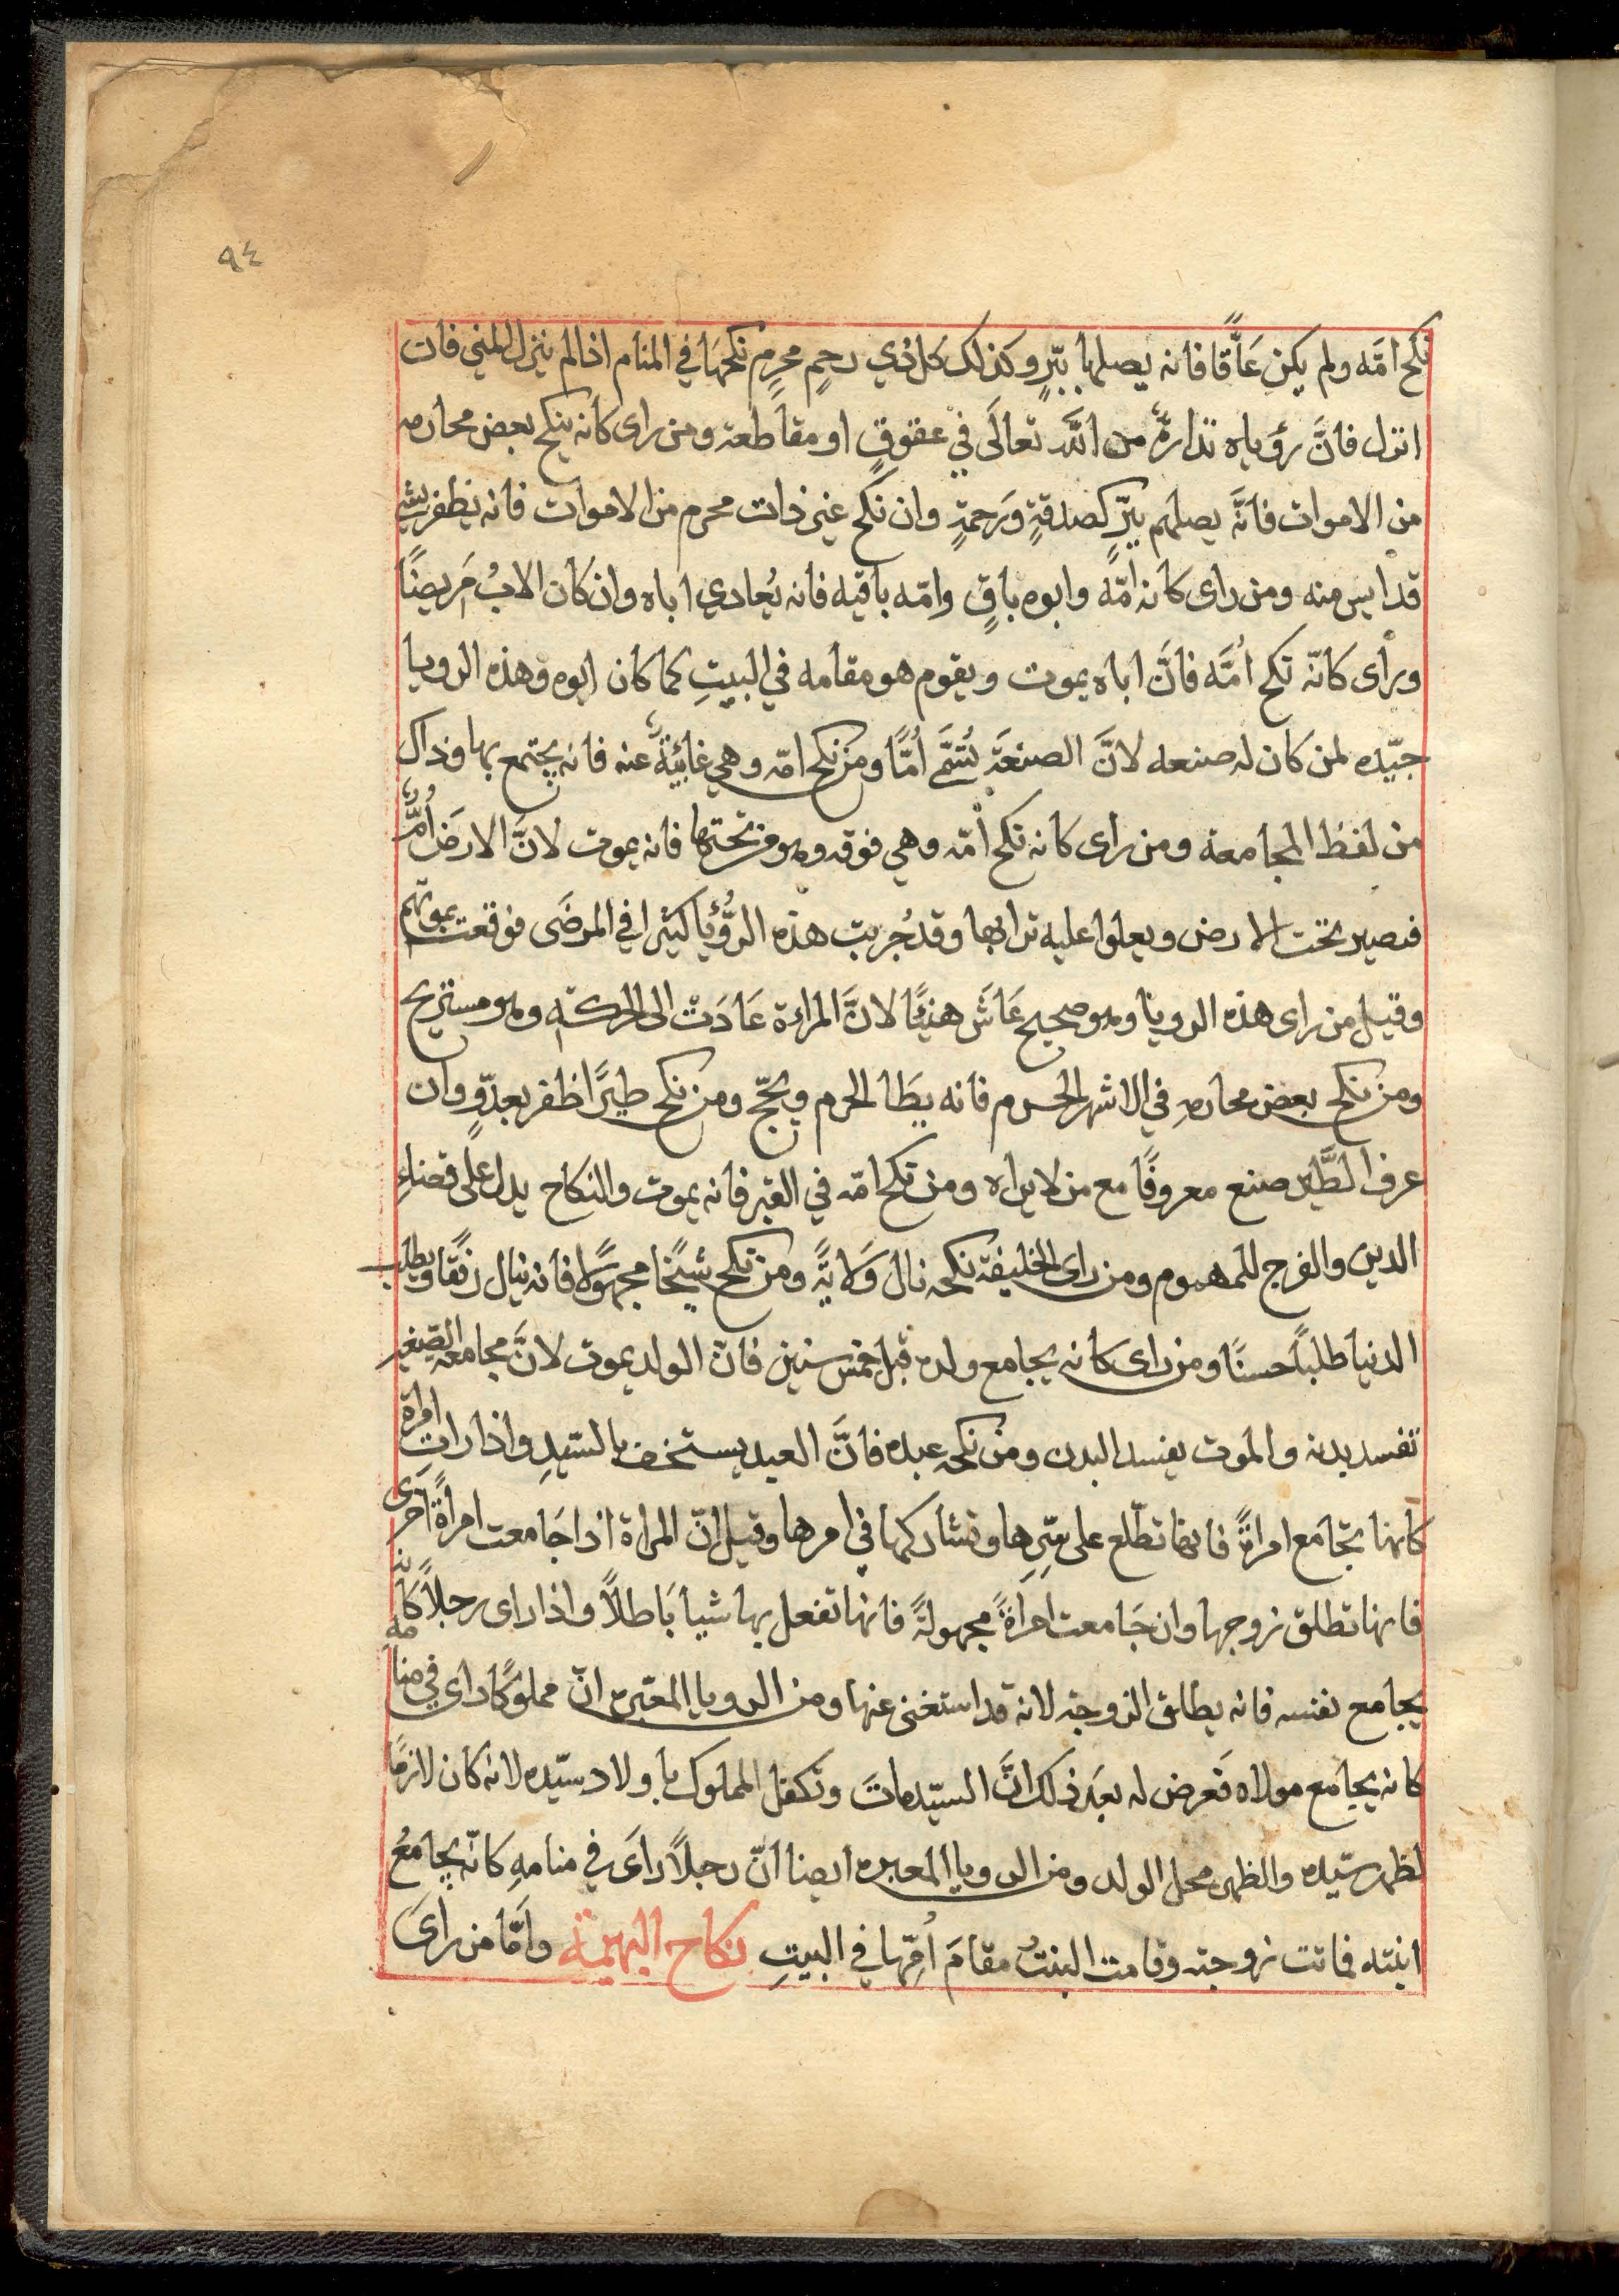 ٩٤
نكح امَّه ولم يكن عَاقًّا فانه يصلها ببرٍّ وكذلك كل ذي رحمٍ محرمٍ نكحها في المنام اذا لم ينزل المني فان
انزل فانَّ رؤياه نذارةٌ من اللَّه تعالَى في عقوقٍ او مقاطعة ومن راى كانه ينكح بعض محارمه
من الاموات فانَّه يصلهم ببرٍّ كصدقةٍ ورَحمةٍ وان نكح غير ذات محرم من الاموات فانه يظفر بشي
قد ايس منه ومن راى كانه امّه وابوه باقٍ وامّه باقيه فانه يُعادي اباه وان كان الابُ مَريضًا
وراى كانّه نكح اُمَّه فانَّ اباه يموت ويقوم هو مقامه في البيتِ كما كان ابوه وهذه الرويا
جيّده لمن كان له صنعه لانَّ الصنعَة تُسَمَّى اُمًّا ومن نكح امّه وهي غايبَةٌ عنه فانه يجتمع بها وذاك
من لفظ المجامعة ومن راى كانه نكح اُمّه وهي فوقه وهو من تحتها فانه يموت لانَّ الارضَ اُمٌّ
فيصير تحت الارض ويعلوا عليه ترابها وقد جُربت هذه الرُّؤيا كثيرا في المرضَى فوقعت بموتهم
وقيل من راى هذه الرويا وهو صحيح عَاشَ هنيًا لانَّ المراءة عَادَتْ الى الحركة وهو مستريح
ومن نكح بعض محارمهِ في الاشهر الحرم فانه يطَا الحرم ويحجّ ومن نكح طيرًا ظفر بعدوٍّ وان
عرف الطَّاير صنع معروفًا مع من لا يراه ومن نكح امّه في القبر فانه يموت والنكاح يدل على قضاءِ
الدين والفرج للمهموم ومن راى الخليفة نكحه نال وَلايَةً ومن نكح شيخًا مجهولًا فانه ينال رفقًا ويطلب
الدنيا طلبًا حسنًا ومن راى كانه يجامع ولده قبل خمس سنين فان الولد يموت لانَّ مجامعة الصغير
تفسد بدنه والموت يفسد البدن ومن نكحه عبده فانَّ العبد يستخف بالسّيدِ واذا راتِ امراة
كانها تجَامع امراةً فانها تطّلع على سِرِّها وتشاركها في امرها وقيل انّ المراة اذا جَامعت امراةً اخرى
فانها تطلق زوجها وان جَامعت امراةً مجهولةً فانها تفعل بها شيا بَاطلًا واذا راى رجلًا كانّه
يجامع نفسه فانه يطلق الزوجة لانه قد استغنى عنها ومن الرويا المعبّره انّ مملوكًا راى في منامه
كانه يجامع مولاه فَعرض له بعَد ذلك انَّ السيّد ماتَ وتكفل المملوك باولاد سيّده لانه كان لازمًا
لظهر سيّده والظهر محل الولد ومن الرويا المعبره ايضا انّ رجلًا راَى في منامهِ كانّه يجامعُ
ابنته فماتت زوجته وقامت البنتُ مقامَ اُمِّها في البيتِ نكاح البهيمة وامَّا من راَى